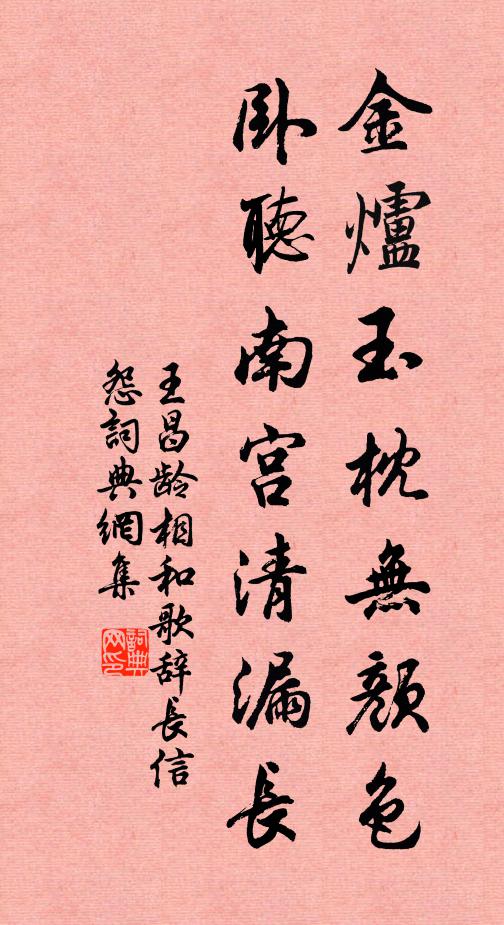 金爐玉枕無顏色
卧聽南宮清漏長
王昌龄相和歌辞長信
怨詞典網集
詞典
网印